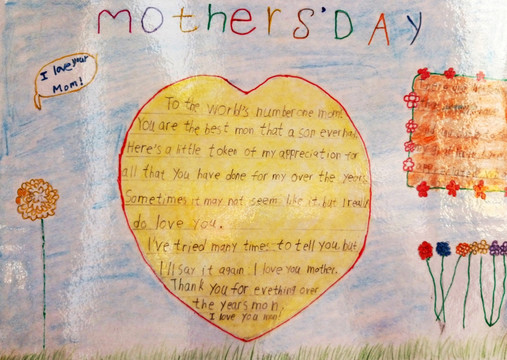 mothers' DAY
I love your
Mom!
To the world's number one mom.
You are the best mon that a son ever had.
Here's a little token of my appreciation for
all that You have done for my over the years.
Sometimes it may not seem like it, but I really
do love you.
I've tried many times to tell you, but
I'll say it again. I love you mother.
Thank you for evething over
the years mon.
I love you mom!